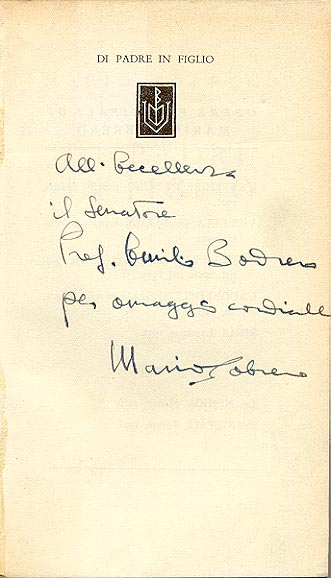 DI PADRE IN FIGLIO
All'Eccellenza
il Senatore
Prof. Emilio Bodrero
per omaggio cordiale
Mario Sobrero